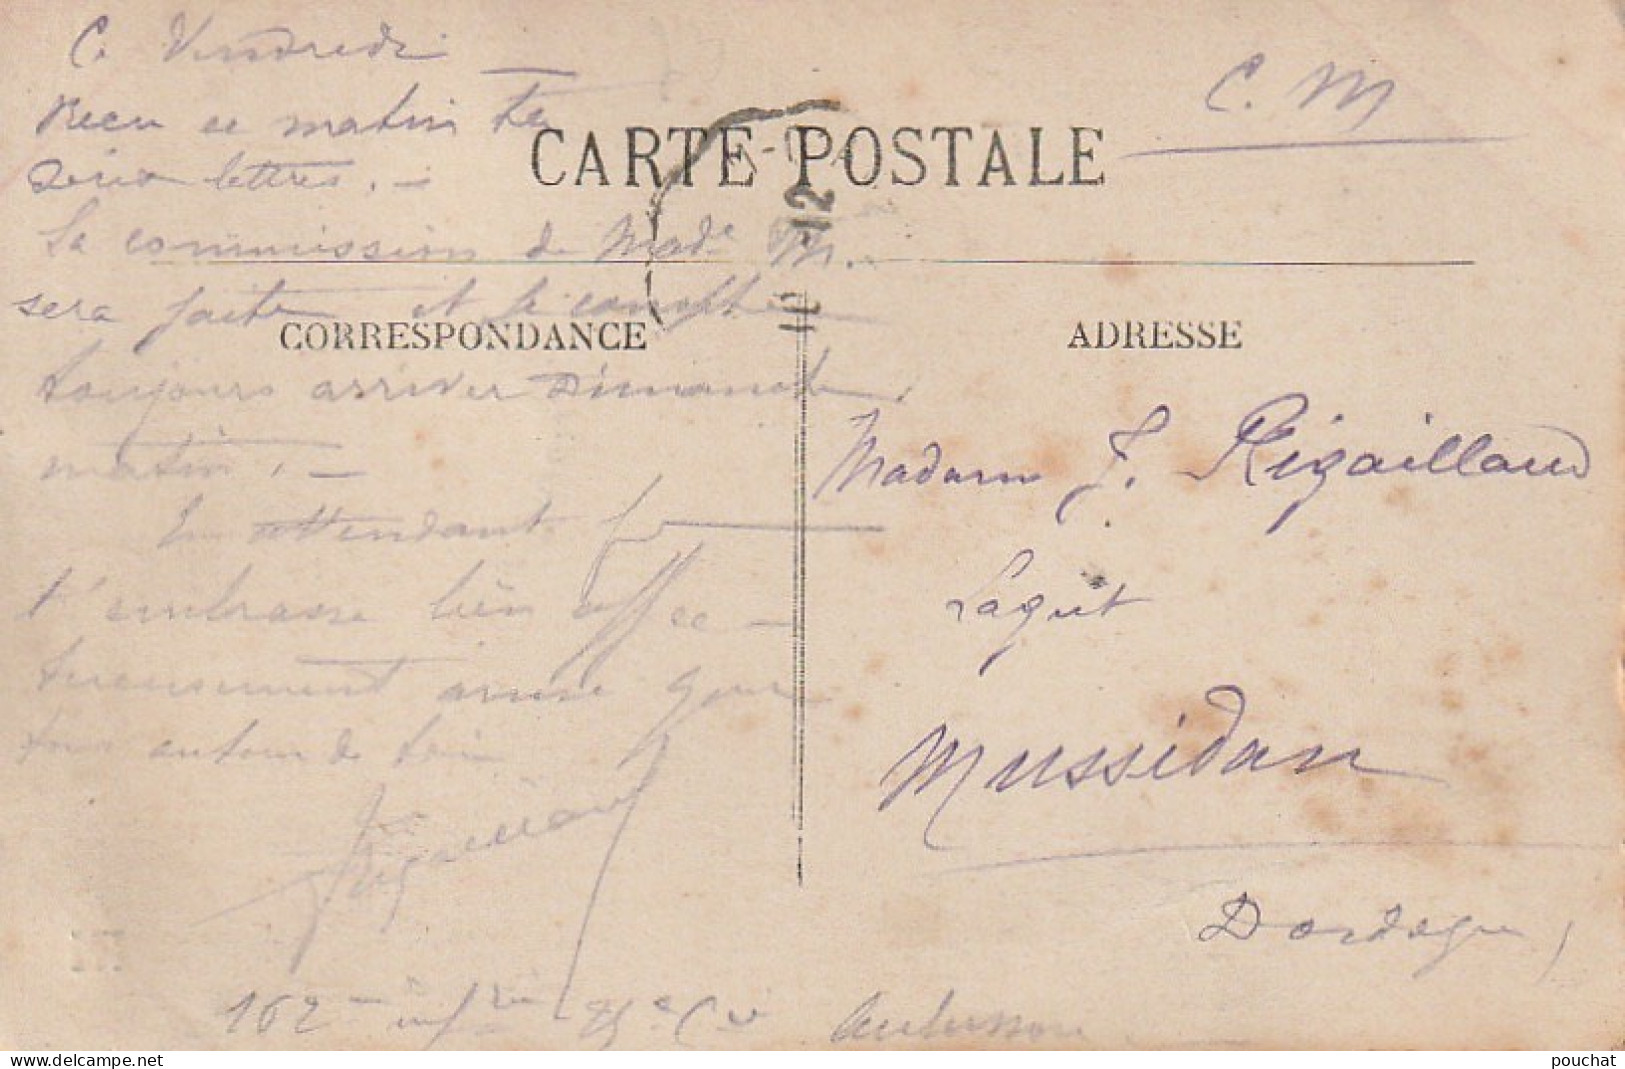 C. Vendredi
Recu ce matin tes
deux lettres. -
La commission de Made M.
sera faite et je compte
toujours arriver Dimanche
matin. -
En attendant je
t'embrasse bien affec-
tueusement ainsi que
tous autour de toi
Rigaillaud
162me infrie 25e Cie Aubusson
C. M
CARTE POSTALE
10-12
CORRESPONDANCE
ADRESSE
Madame J. Rigaillaud
Lagut
Mussidan
Dordogne
www.delcampe.net
pouchat